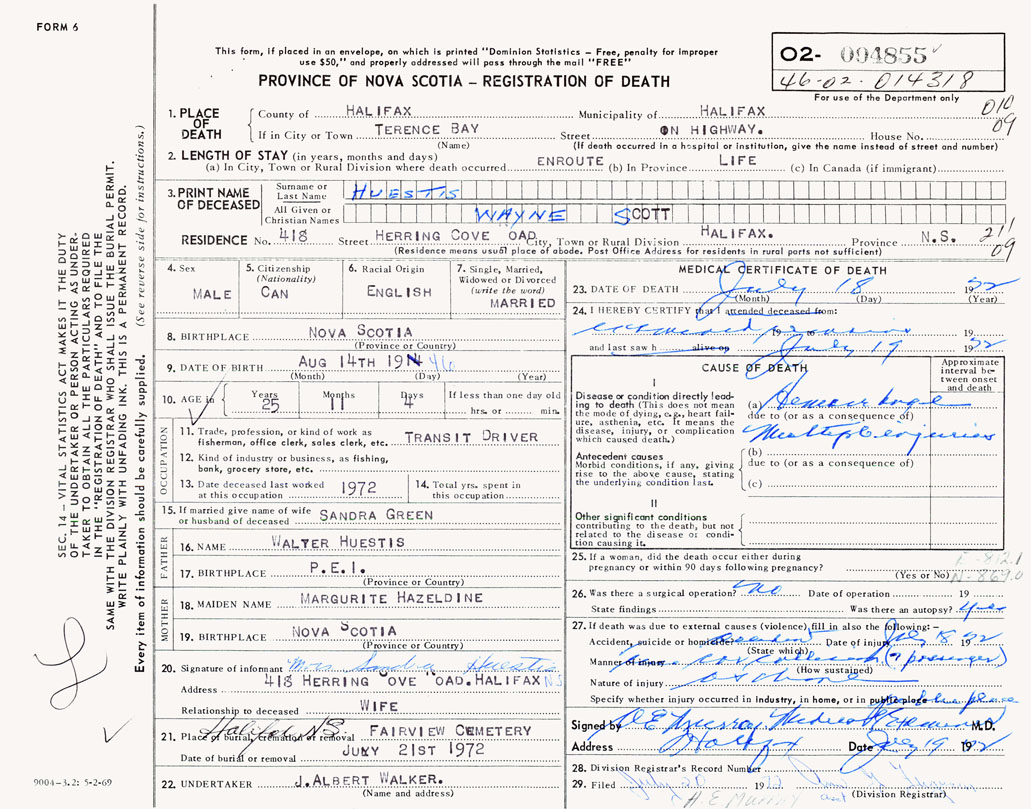 FORM 6
This form, if placed in an envelope, on which is printed "Dominion Statistics – Free, penalty for improper
use $50," and properly addressed will pass through the mail "FREE"
PROVINCE OF NOVA SCOTIA – REGISTRATION OF DEATH
02- 094855
46-02-014318
For use of the Department only
010
09
1. PLACE OF DEATH
County of HALIFAX Municipality of HALIFAX
If in City or Town TERENCE BAY Street ON HIGHWAY. House No.
(Name) (If death occurred in a hospital or institution, give the name instead of street and number)
2. LENGTH OF STAY (in years, months and days)
(a) In City, Town or Rural Division where death occurred ENROUTE (b) In Province LIFE (c) In Canada (if immigrant)
3. PRINT NAME OF DECEASED
Surname or Last Name HUESTIS
All Given or Christian Names WAYNE SCOTT
RESIDENCE No. 418 Street HERRING COVE OAD. City, Town or Rural Division HALIFAX. Province N.S.
211
09
(Residence means usual place of abode. Post Office Address for residents in rural parts not sufficient)
4. Sex
MALE
5. Citizenship
(Nationality)
CAN
6. Racial Origin
ENGLISH
7. Single, Married,
Widowed or Divorced
(write the word)
MARRIED
8. BIRTHPLACE NOVA SCOTIA
(Province or Country)
9. DATE OF BIRTH AUG 14TH 19 46
(Month) (Day) (Year)
10. AGE in Years 25 Months 11 Days 4 If less than one day old
hrs. or min.
OCCUPATION
11. Trade, profession, or kind of work as
fisherman, office clerk, sales clerk, etc. TRANSIT DRIVER
12. Kind of industry or business, as fishing,
bank, grocery store, etc.
13. Date deceased last worked
at this occupation 1972
14. Total yrs. spent in
this occupation
15. If married give name of wife
or husband of deceased SANDRA GREEN
FATHER
16. NAME WALTER HUESTIS
17. BIRTHPLACE P.E.I.
(Province or Country)
MOTHER
18. MAIDEN NAME MARGURITE HAZELDINE
19. BIRTHPLACE NOVA SCOTIA
(Province or Country)
20. Signature of informant Mrs Sandra Huestis
Address 418 HERRING OVE OAD. HALIFAX N.S.
Relationship to deceased WIFE
21. Place of burial, cremation or removal Halifax N.S. FAIRVIEW CEMETERY
Date of burial or removal JULY 21ST 1972
22. UNDERTAKER J. ALBERT WALKER.
(Name and address)
MEDICAL CERTIFICATE OF DEATH
23. DATE OF DEATH July 18 1972
(Month) (Day) (Year)
24. I HEREBY CERTIFY that I attended deceased from:
19 19
and last saw h alive on July 19 1972
CAUSE OF DEATH
Approximate interval between onset and death
I
Disease or condition directly leading
to death (This does not mean
the mode of dying, e.g., heart failure,
asthenia, etc. It means the
disease, injury, or complication
which caused death.)
(a) Hemorrhage
due to (or as a consequence of)
Multiple injuries
Antecedent causes
Morbid conditions, if any, giving
rise to the above cause, stating
the underlying condition last.
(b)
due to (or as a consequence of)
(c)
II
Other significant conditions
contributing to the death, but not
related to the disease or condition
causing it.
25. If a woman, did the death occur either during
pregnancy or within 90 days following pregnancy?
(Yes or No)
E-812.1
N-869.0
26. Was there a surgical operation? No Date of operation 19
State findings Was there an autopsy? Yes
27. If death was due to external causes (violence) fill in also the following: –
Accident, suicide or homicide? Accident Date of injury July 18 1972
(State which)
Manner of injury Car Collision (? passenger)
(How sustained)
Nature of injury as above
Specify whether injury occurred in industry, in home, or in public place public place
Signed by Murray, Medical Examiner M.D.
Address Halifax Date July 19 1972
28. Division Registrar's Record Number
29. Filed July 20 19
(Division Registrar)
H. E. Murray
SEC. 14 – VITAL STATISTICS ACT MAKES IT THE DUTY
OF THE UNDERTAKER OR PERSON ACTING AS UNDERTAKER
TO OBTAIN ALL THE PARTICULARS REQUIRED
IN THE "REGISTRATION OF DEATH" AND TO FILE THE
SAME WITH THE DIVISION REGISTRAR WHO SHALL ISSUE THE BURIAL PERMIT.
WRITE PLAINLY WITH UNFADING INK. THIS IS A PERMANENT RECORD.
Every item of information should be carefully supplied. (See reverse side for instructions.)
9004-3.2: 5-2-69